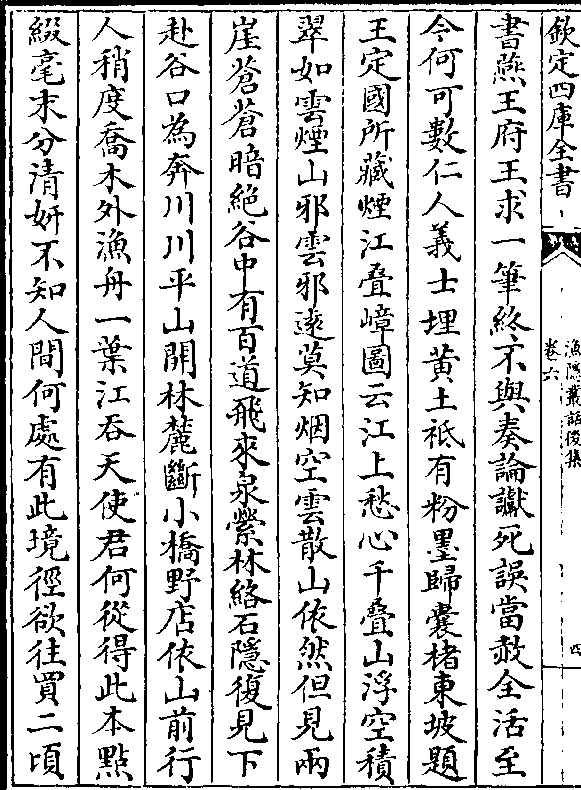 欽定四庫全書
漁隱叢話後集
卷六
四
書燕王府王求一筆終不與奏論讞死誤當赦全活至
今何可數仁人義士埋黃土祗有粉墨歸囊楮東坡題
王定國所藏煙江叠嶂圖云江上愁心千叠山浮空積
翠如雲煙山邪雲邪遠莫知烟空雲散山依然但見兩
崖蒼蒼暗絶谷中有百道飛來泉縈林絡石隱復見下
赴谷口為奔川川平山開林麓斷小橋野店依山前行
人稍度喬木外漁舟一葉江吞天使君何從得此本點
綴毫末分清妍不知人間何處有此境徑欲往買二頃